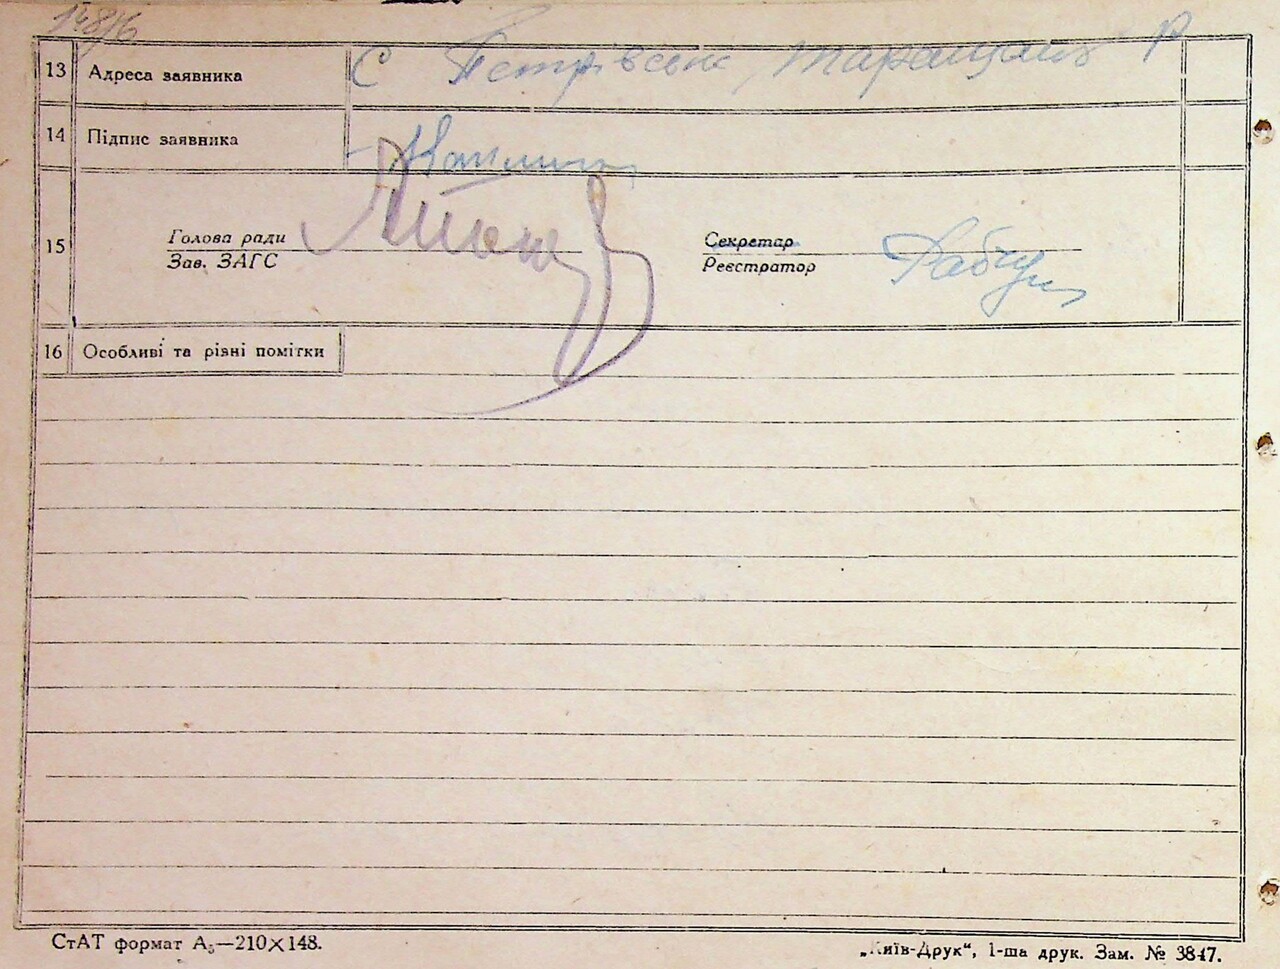 148/6
13 Адреса заявника С Петрівське Таращанс Р
14 Підпис заявника
15 Голова ради
Зав. ЗАГС
Секретар
Реєстратор
16 Особливі та різні помітки
СтАТ формат А₅—210×148.
„Київ-Друк“, 1-ша друк. Зам. № 3847.